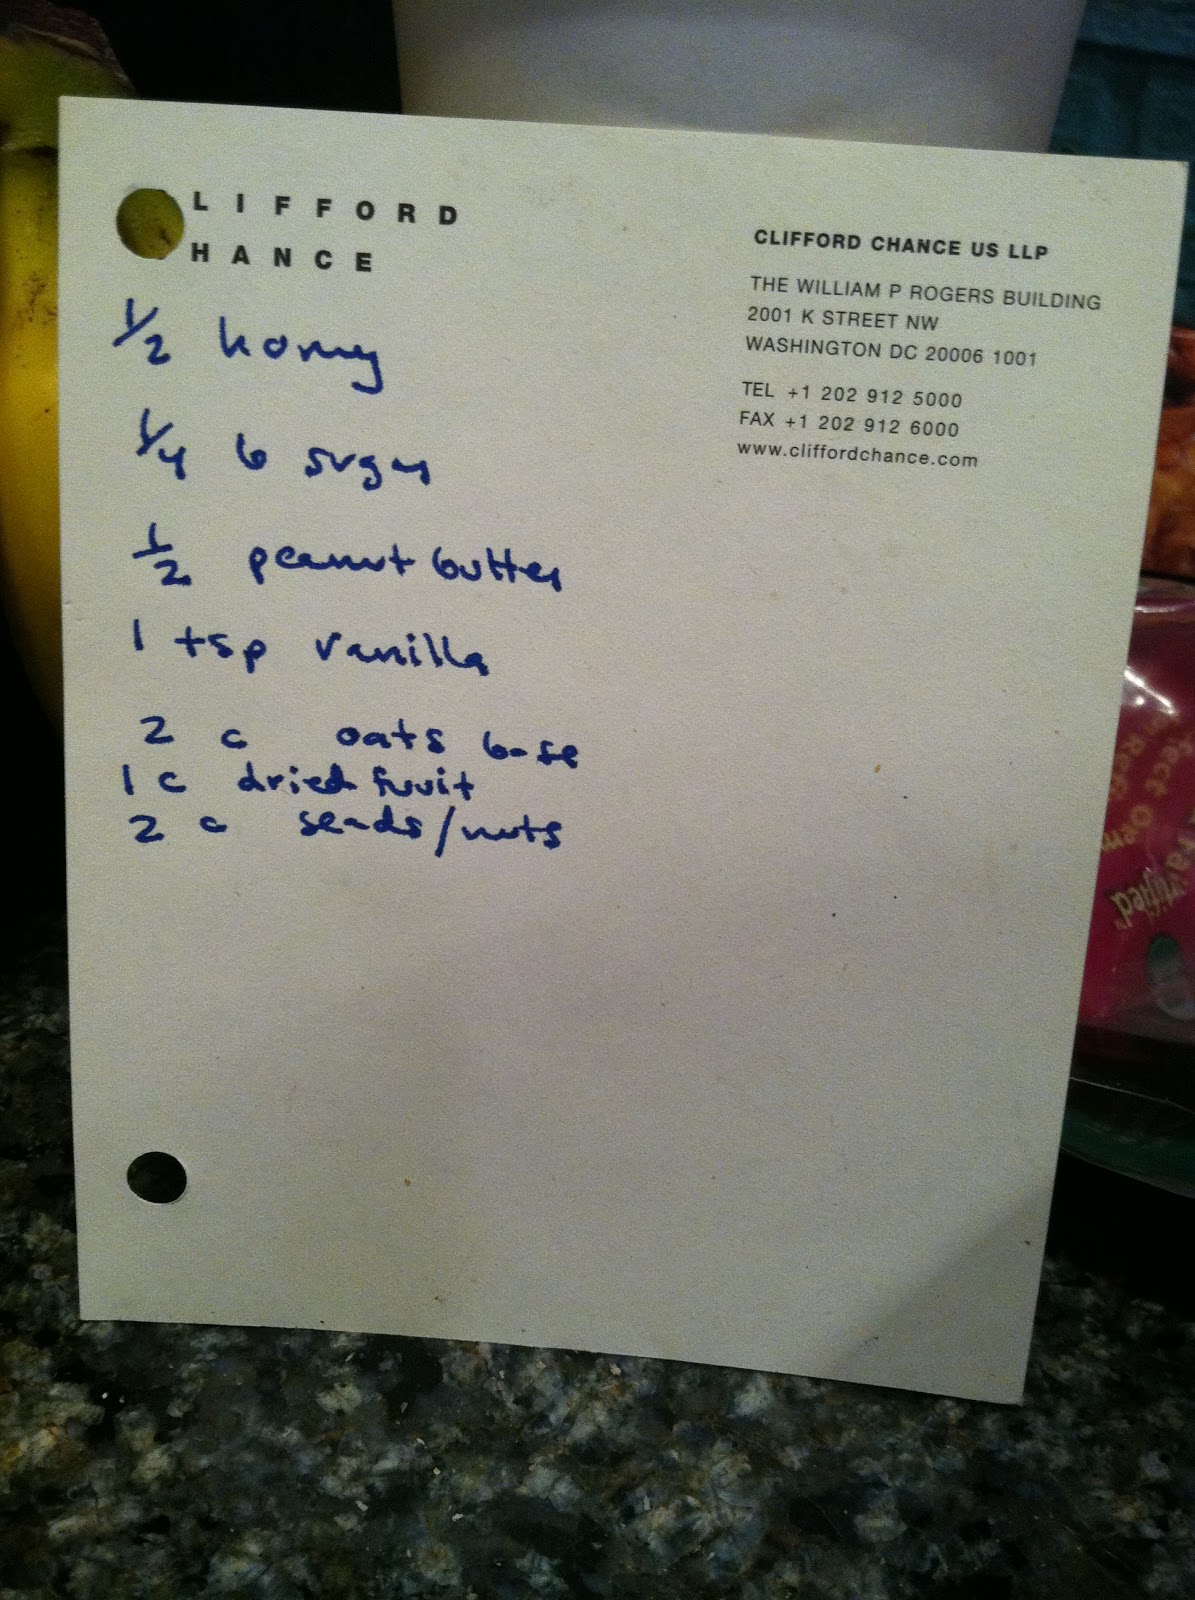 LIFFORD
HANCE
CLIFFORD CHANCE US LLP
THE WILLIAM P ROGERS BUILDING
2001 K STREET NW
WASHINGTON DC 20006 1001
TEL +1 202 912 5000
FAX +1 202 912 6000
www.cliffordchance.com
1/2 honey
1/4 b sugar
1/2 peanut butter
1 tsp vanilla
2 c oats base
1 c dried fruit
2 c seeds/nuts